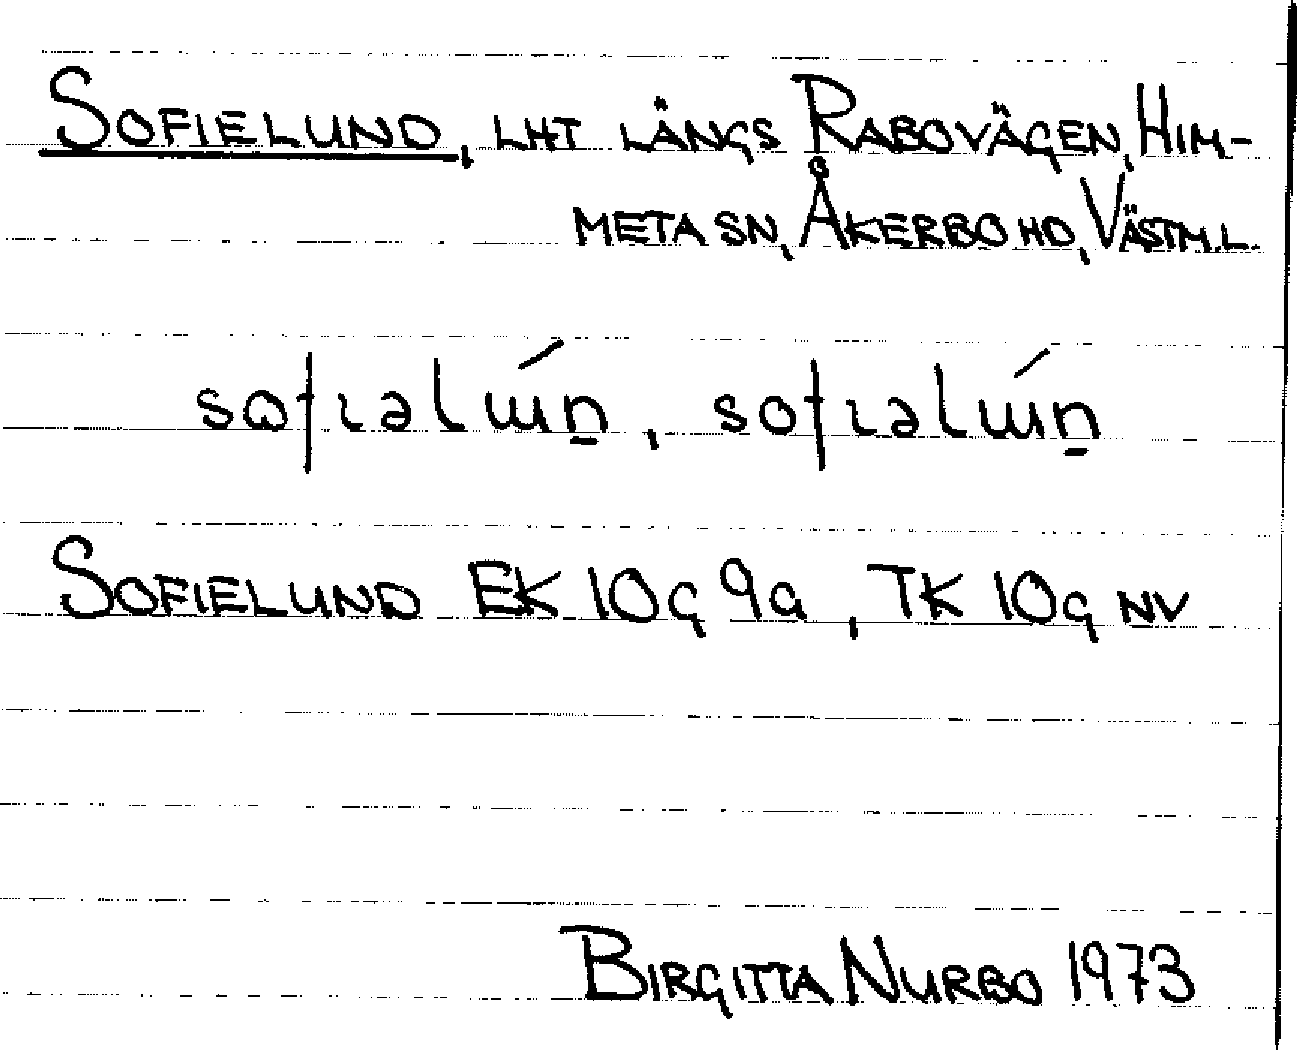 SOFIELUND, LHT LÄNGS RABOVÄGEN, HIM-
META SN, ÅKERBO HD, VÄSTM.L.
sɷfıəlɯ́n̠, sofıəlɯ́n̠
SOFIELUND EK 10G 9a, TK 10G NV
BIRGITTA NURBO 1973